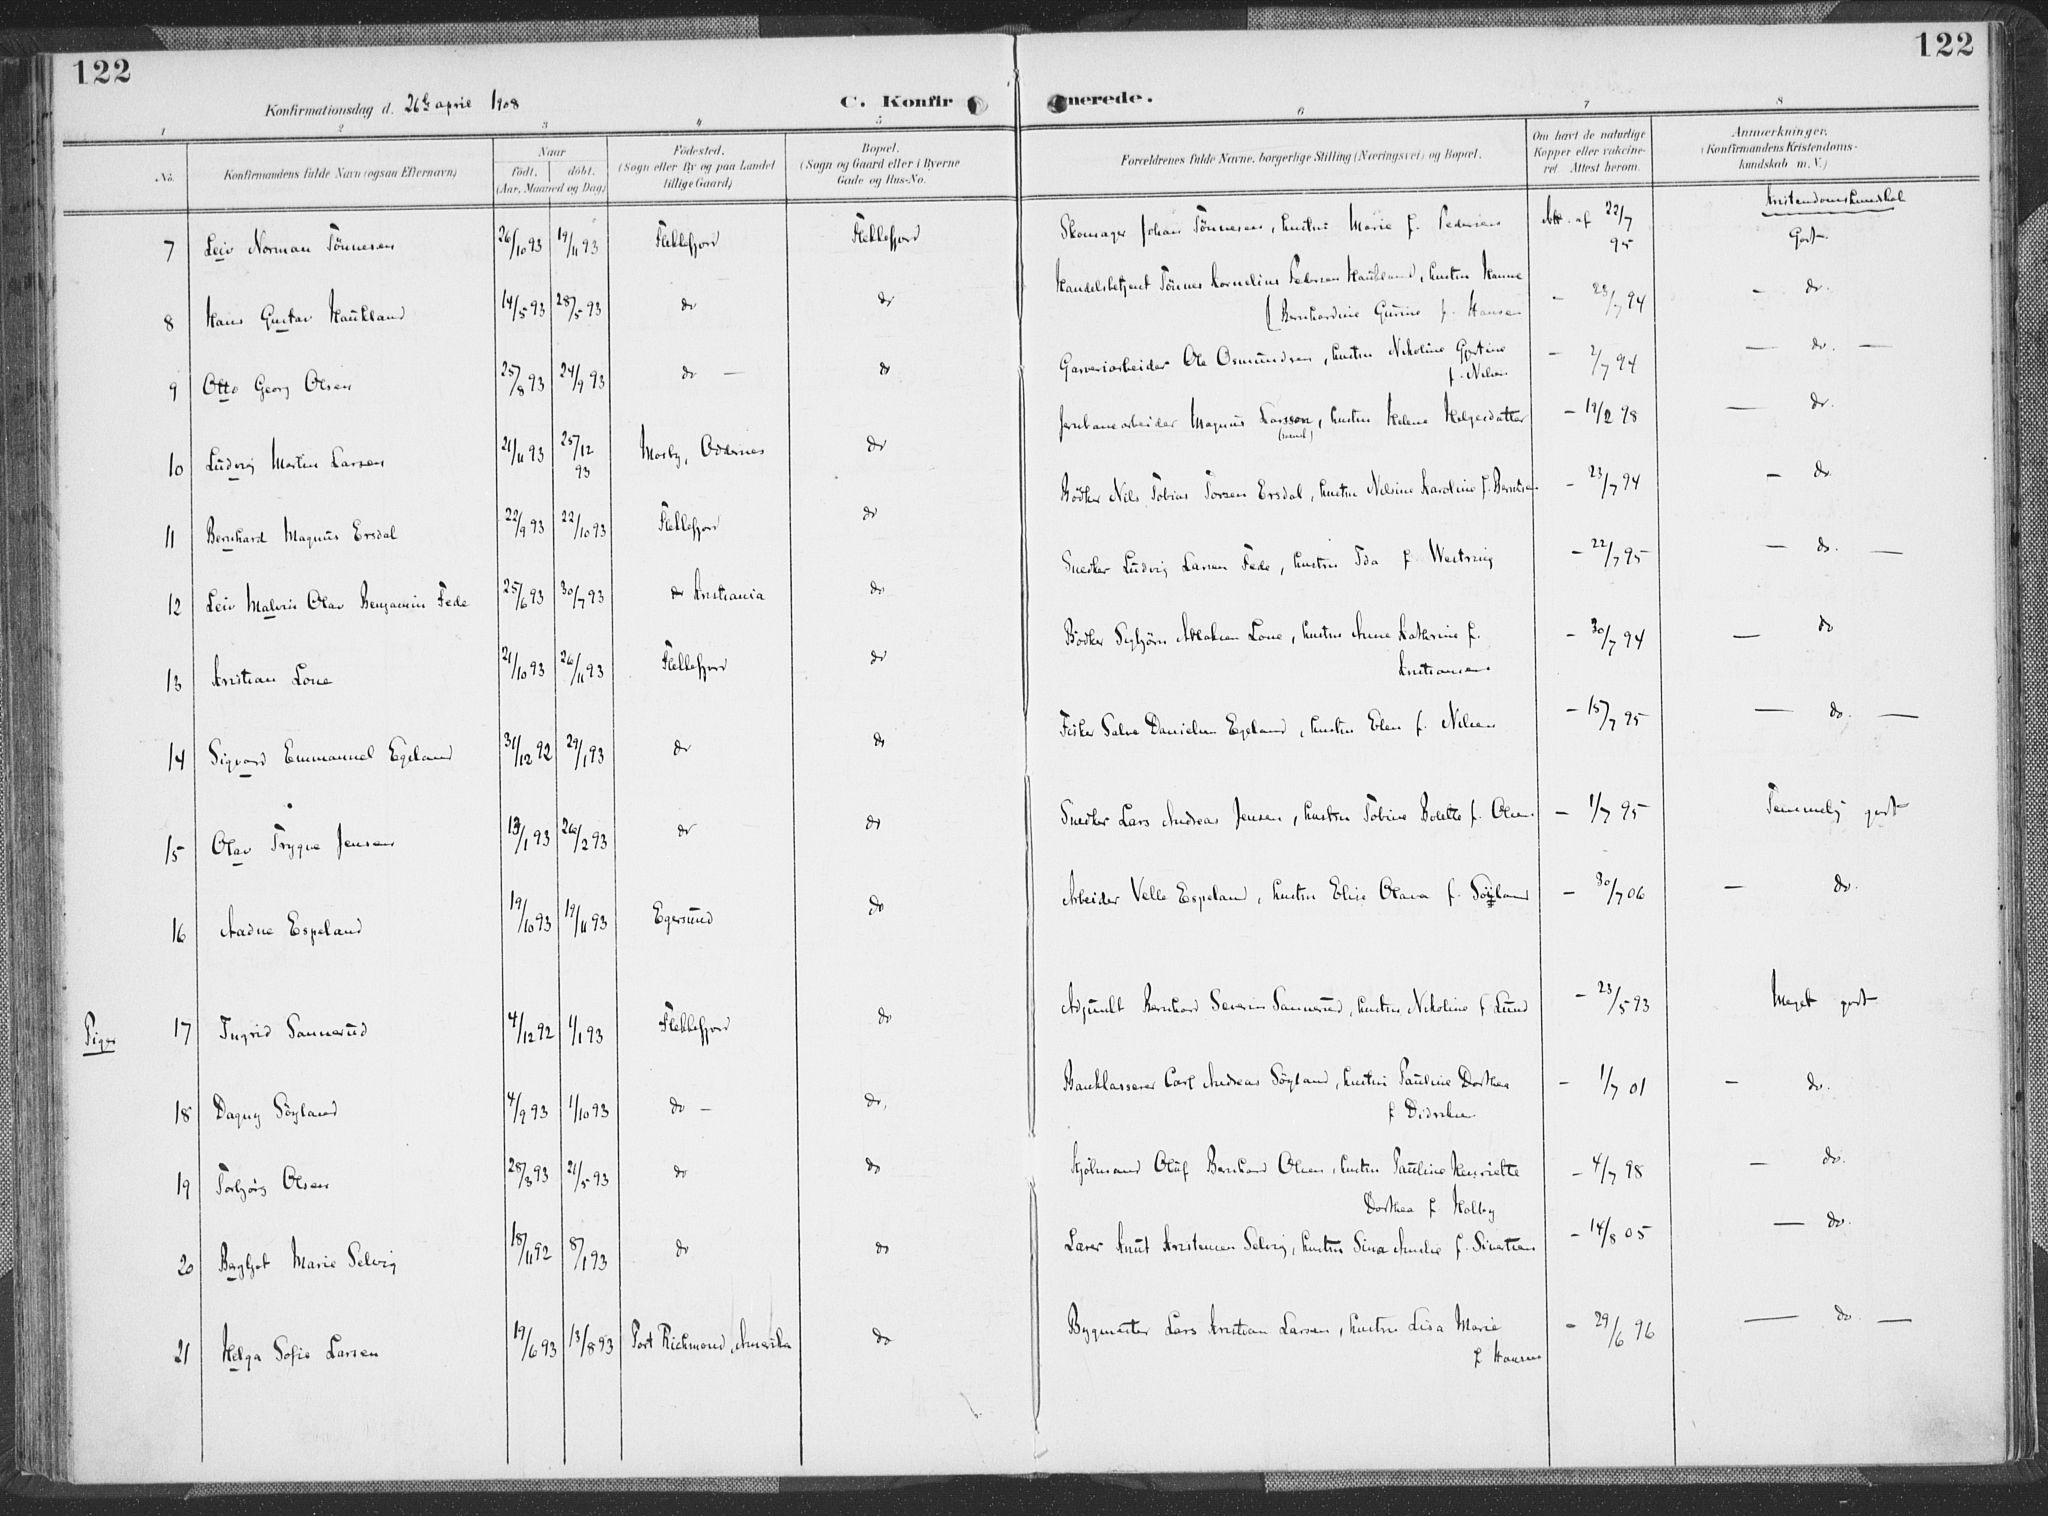 122
122
Konfirmationsdag d. 26de april 1908
C. Konfir
merede.
1 2 3 4 5 6 7 8
No. Konfirmandens fulde Navn (ogsaa Efternavn) Naar født. døbt. (Aar, Maaned og Dag) Fødested. (Sogn eller By og paa Landet tillige Gaard) Bopæl. (Sogn og Gaard eller i Byerne Gade og Hus-No. Forældrenes fulde Navne, borgerlige Stilling (Næringsvei) og Bopæl. Om havt de naturlige Kopper eller vakcineret Attest herom. Anmærkninger. (Konfirmandens Kristendomskundskab m. V.)
Kristendomskundskab
7 Leiv Norman Tönnesen 26/10 93 19/11 93 Flekkefjord Flekkefjord Skomager Johan Tönnesen, hustru Marie f. Pedersen Att. af 22/7 95 Godt
8 Hans Gustav Haukland 14/5 93 28/5 93 do do Handelsbetjent Tönnes Kornelius Pedersen Haukland, hustru Hanne
Bernhardine Gurine f. Hansen — 23/7 94 — do.
9 Otto Georg Olsen 25/8 93 24/9 93 do — do Garveriarbeider Ole Osmundsen, hustru Nikoline Gjertine
f. Nilsen — 2/7 94 — do. —
10 Ludvig Martin Larsen 21/11 93 25/12 93 Mosby, Oddernes do Jernbanearbeider Magnus Larsson, hustru Helene Helgesdatter — 19/2 98 — do.
11 Bernhard Magnus Ersdal 22/9 93 22/10 93 Flekkefjord do Bödker Nils Tobias Torsen Ersdal, hustru Nilsine Karoline f. Berntsen — 23/7 94 — do
12 Leiv Malvin Olav Benjamin Fede 25/6 93 30/7 93 Kristiania do Snedker Ludvig Larsen Fede, hustru Ida f. Westring — 22/7 95 — do. —
13 Kristian Lone 21/10 93 26/11 93 Flekkefjord do Bödker Sigbjörn Lone, hustru Anne Kathrine f.
Kristiansen — 30/7 94 — do
14 Sigvard Emmanuel Egeland 31/12 92 29/1 93 do do Fisker Salve Danielsen Egeland, hustru Elen f. Nilsen — 15/7 95 — do. —
15 Olav Trygve Jensen 13/1 93 26/2 93 do do Snedker Lars Andreas Jensen, hustru Tobine Bolette f. Olsen — 1/7 95 Temmelig godt
16 Aadne Espeland 19/10 93 19/11 93 Egersund do Arbeider Velle Espeland, hustru Elise Olava f. Söyland — 30/7 06 — do.
Piger 17 Ingrid Sannerud 4/12 92 1/1 93 Flekkefjord do Adjunkt Bernhard Severin Sannerud, hustru Nikoline f Lund — 23/5 93 Meget godt
18 Dagny Söyland 4/9 93 1/10 93 do — do, Bankkasserer Carl Andreas Söyland, hustru Pauline Dorthea
f Didriksen — 1/7 01 — do.
19 Torbjörg Olsen 28/3 93 21/5 93 do do Sjömand Oluf Bernhard Olsen, hustru Pauline Henriette
Dorthea f Holby — 4/7 98 — do.
20 Bergljot Marie Selvig 18/11 92 8/1 93 do do Lærer Knut Kristensen Selvig, hustru Sina Amalie f. Sivertsen — 14/8 05 — do.
21 Helga Sofie Larsen 19/6 93 13/8 93 Port Richmond, Amerika do Bygmester Lars Kristian Larsen, hustru Lisa Marie
f Hansen — 29/6 96 — do. —